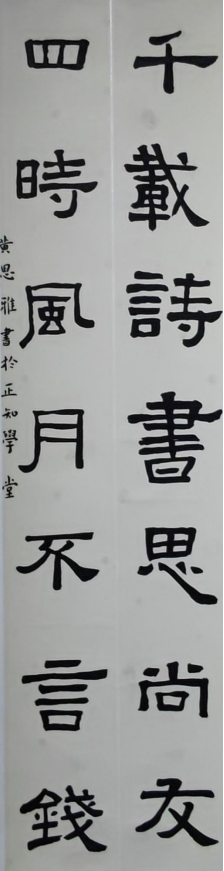 千載詩書思尚友
四時風月不言錢
黄思雅書於正知學堂